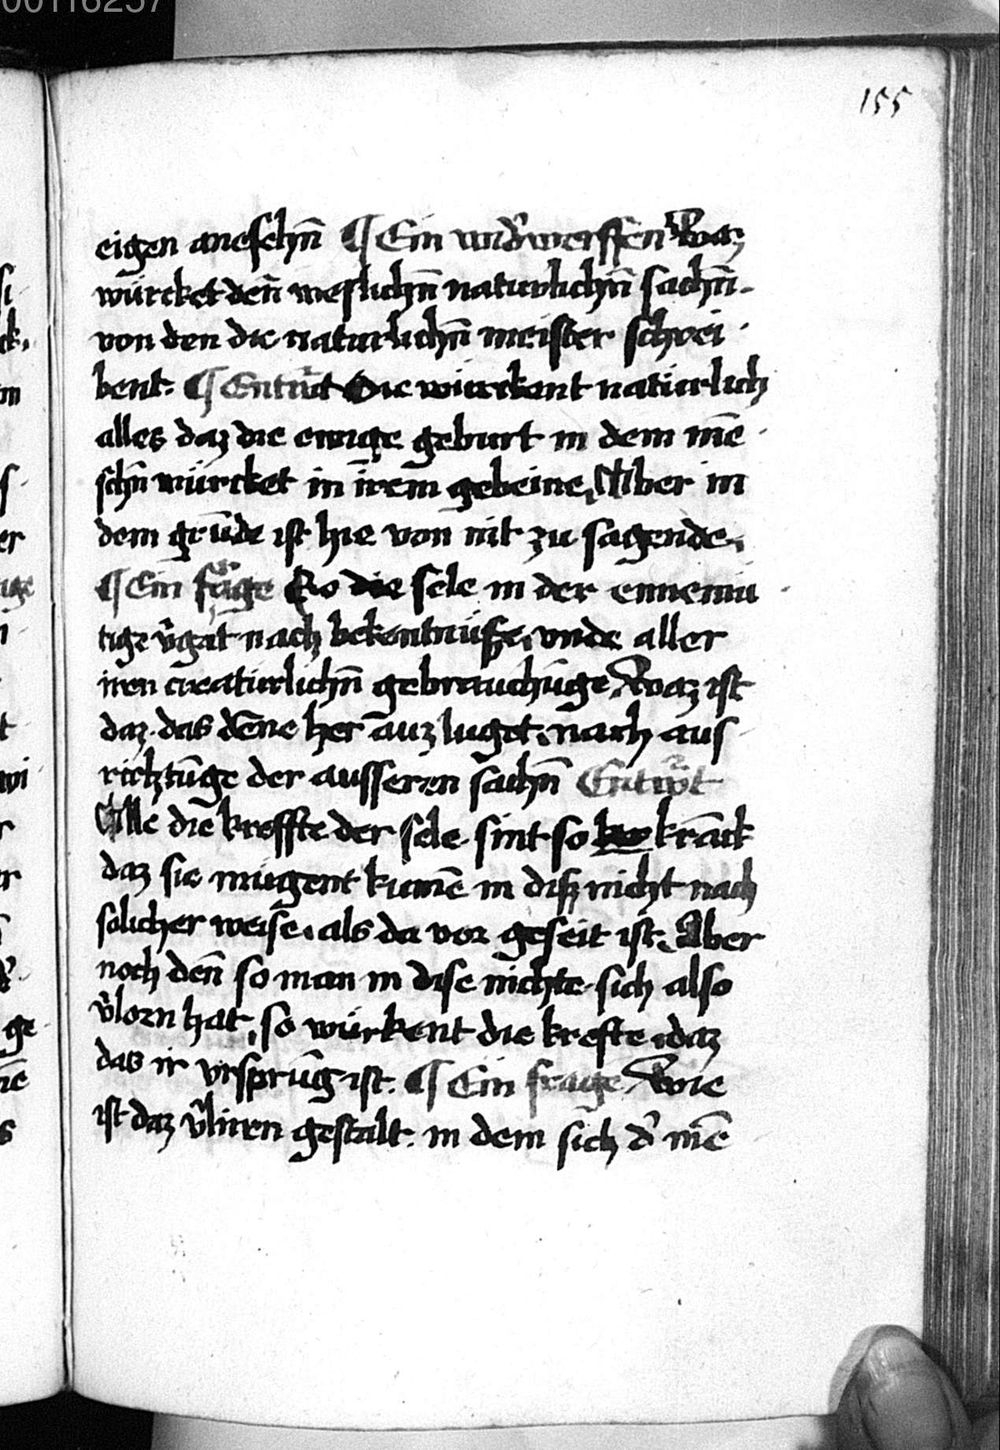 00116257
155
eigen anesehn̄ ¶ Ein vnd'werffen Waz
würcket den̄ weslichn̄ naturlichn̄ sachn̄
von den die naturlichn̄ meister schrei
bent. ¶ Entw̄t Die würckent natürlich
alles daz die ewige geburt in dem mē
schn̄ würcket in irem gebeine, Aber in
dem grūde ist hie von nit zu sagende.
¶ Ein frage So die sele in der einmü
tige v̄gat nach bekentnüsze, vnde aller
iren creatürlichn̄ gebrauchūge, Waz ist
daz. das dēne her auz luget. nach aus
richtūge der ausseren sachn̄ Entw̄t
Alle die kreffte der sele. sint so kranck
daz sie mügent kumē in disz nicht nach
solicher weise. als da vor geseit ist. Aber
noch den̄ so man in dise nichte sich also
v̄lorn hat, so würkent die krefte. daz
das ir vrsprūg ist. ¶ Ein frage. Wie
ist daz v̄liren gestalt. in dem sich d' mē